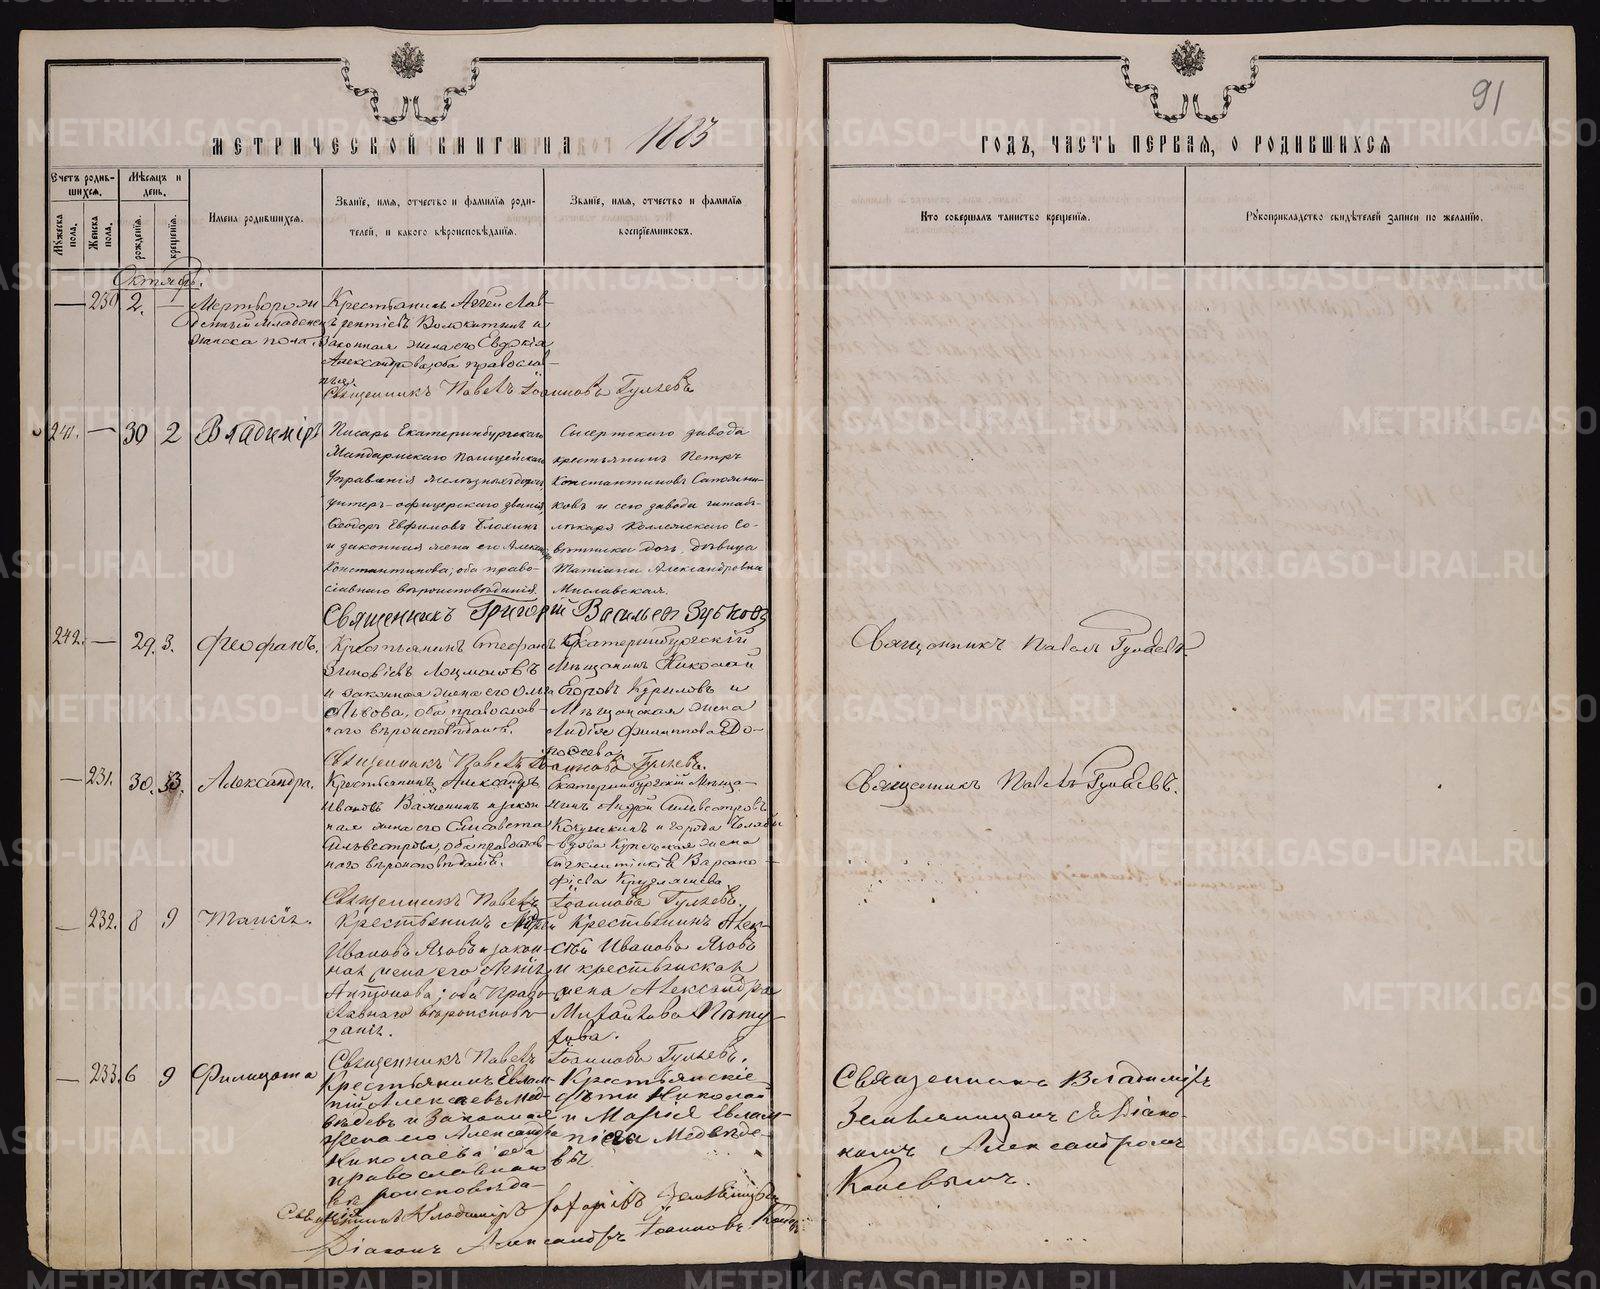 91
МЕТРИЧЕСКОЙ КНИГИ НА 1883
ГОДЪ, ЧАСТЬ ПЕРВАЯ, О РОДИВШИХСЯ
Счетъ родив-
шихся.
Мѣсяцъ и
день.
Мужеска пола.
Женска пола.
рожденія.
крещенія.
Имена родившихся.
Званіе, имя, отчество и фамилія роди-
телей, и какого вѣроисповѣданія.
Званіе, имя, отчество и фамилія
воспріемниковъ.
Кто совершалъ таинство крещенія.
Рукоприкладство свидѣтелей записи по желанію.
Октябрь.
— 230 2. — Мертворож
денный младенец
женска пола.
Крестьянинъ Лав-
рентіевъ Волокитинъ и
законная жена его Евдокія
Александрова, оба православ-
ные.
Священникъ Павелъ Іоанновъ Гуляевъ
241. — 30 2 Владиміръ
Писарь Екатеринбургскаго
Жандармскаго Полицейскаго
Управленія желѣзныхъ дорогъ
унтеръ-офицерскаго званія,
Ѳеодоръ Евфимовъ Блохинъ
и законная жена его Александра
Константинова; оба право-
славнаго вѣроисповѣданія.
Сысертскаго завода
крестьянинъ Петръ
Константиновъ Сапожни-
ковъ и сего завода штабъ-
лѣкаря Коллежскаго Со-
вѣтника дочь, дѣвица
Татіана Александровна
Миславская.
Священникъ Григорій Васильевъ Зубковъ
242. — 29. 3. Феофанъ.
Крестьянинъ Стефанъ
Зиновіевъ Лоцмановъ
и законная жена его Ольга
Львова, оба православ-
наго вѣроисповѣданія.
Екатеринбургскій
Мѣщанинъ Николай
Егоровъ Куриловъ и
Мѣщанская жена
Лидія Филиппова До-
рофеева.
Священникъ Павелъ Гуляевъ.
Священникъ Павелъ Іоанновъ Гуляевъ.
— 231. 30. 3. Александра.
Крестьянинъ Александръ
Ивановъ Важенинъ и закон-
ная жена его Елисавета
Сильвестрова, оба православ-
наго вѣроисповѣданія.
Екатеринбургскій Мѣща-
нинъ Андрей Сильвестровъ
и города Челябы
вдова Купеческая жена
Варсано-
фіева
Священникъ Павелъ Гуляевъ.
Священникъ Павелъ Іоанновъ Гуляевъ.
— 232. 8 9 Таисія.
Крестьянинъ
Ивановъ Язовъ и закон-
ная жена его Агнія
Антонова; оба Право-
славнаго вѣроисповѣ-
данія.
Крестьянинъ Алек-
сѣй Ивановъ Язовъ
и крестьянская
жена Александра
Михайлова Пѣту-
хова.
Священникъ Павелъ Іоанновъ Гуляевъ.
— 233. 6 9 Филицата
Крестьянинъ Евлам-
пій Алексѣевъ Мед-
вѣдевъ и Законная
жена его Александра
Николаева оба
православнаго
вѣроисповѣда-
нія
Крестьянскіе
дѣти Николай
и Марія Евлам-
піева Медвѣде-
вы
Священникъ Владиміръ
Земляницынъ съ Діако-
номъ Александромъ
Коневымъ.
Священникъ Владиміръ Земляницынъ
Діаконъ Александръ Іоанновъ